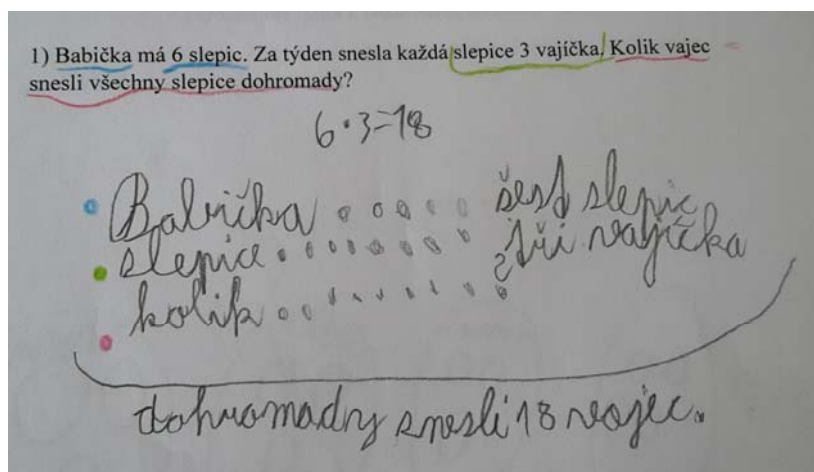 1) Babička má 6 slepic. Za týden snesla každá slepice 3 vajíčka. Kolik vajec
snesli všechny slepice dohromady?
6·3=18
Babička . . . . . šest slepic
slepice . . . . . . . . tři vajíčka
kolik . . . . . . . . ?
dohromady snesli 18 vajec.